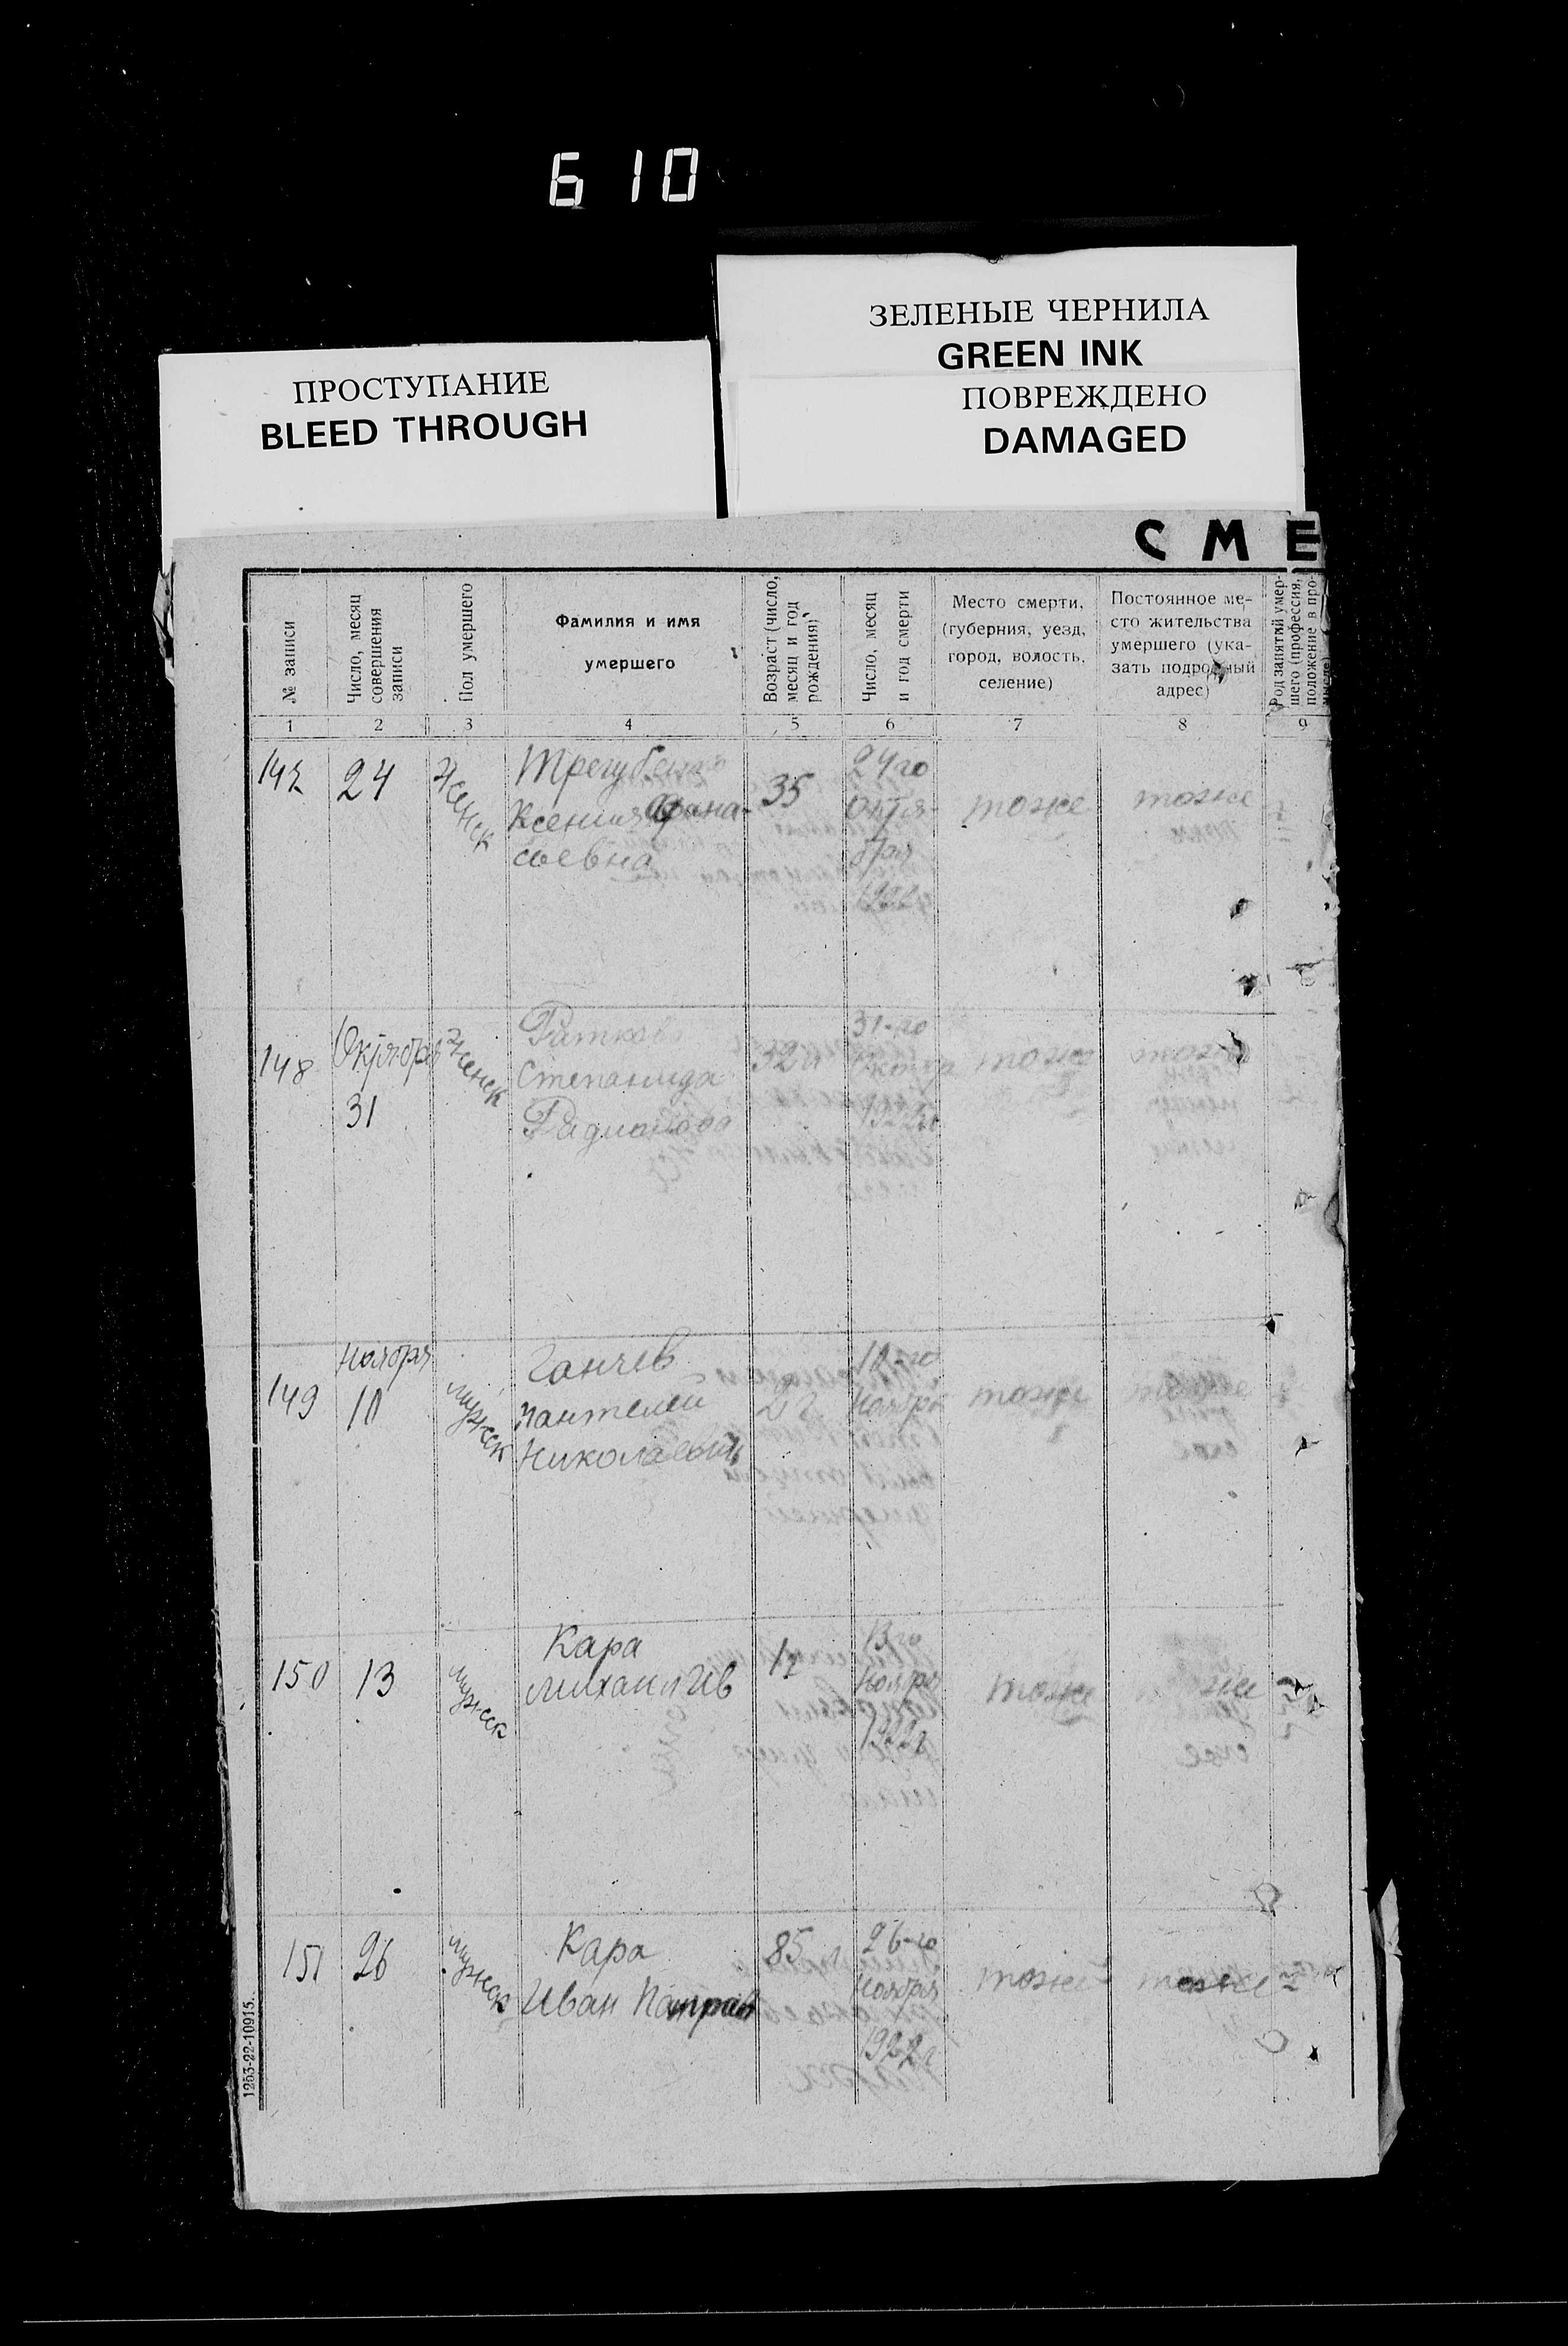 610
ЗЕЛЕНЫЕ ЧЕРНИЛА
GREEN INK
ПОВРЕЖДЕНО
DAMAGED
ПРОСТУПАНИЕ
BLEED THROUGH
СМЕ
№ записи
Число, месяц
совершения
записи
Пол умершего
Фамилия и имя
умершего
Возраст (число,
месяц и год
рождения)
Число, месяц
и год смерти
Место смерти,
(губерния, уезд,
город, волость,
селение)
Постоянное ме-
сто жительства
умершего (ука-
зать подробный
адрес)
Род занятий умер-
шего (профессия,
положение в про-
мысле)
1 2 3 4 5 6 7 8 9
147
24
Женск
Трегубенко
Ксения Афана-
сьевна
35
24го
Октя-
бря
1922
тоже
тоже
148
Октября
31
Женск
Степанида
32
31-го
тоже
тоже
149
Ноября
10
мужск
Ганчев
Пантелей
Николаевич
10-го
Ноября
тоже
150
13
мужск
Кара
Михаил Ив
12
13го
Ноября
1922г
тоже
151
26
мужск
Кара
Иван
85
26-го
Ноября
1922г
тоже
тоже
1253-22-10915.